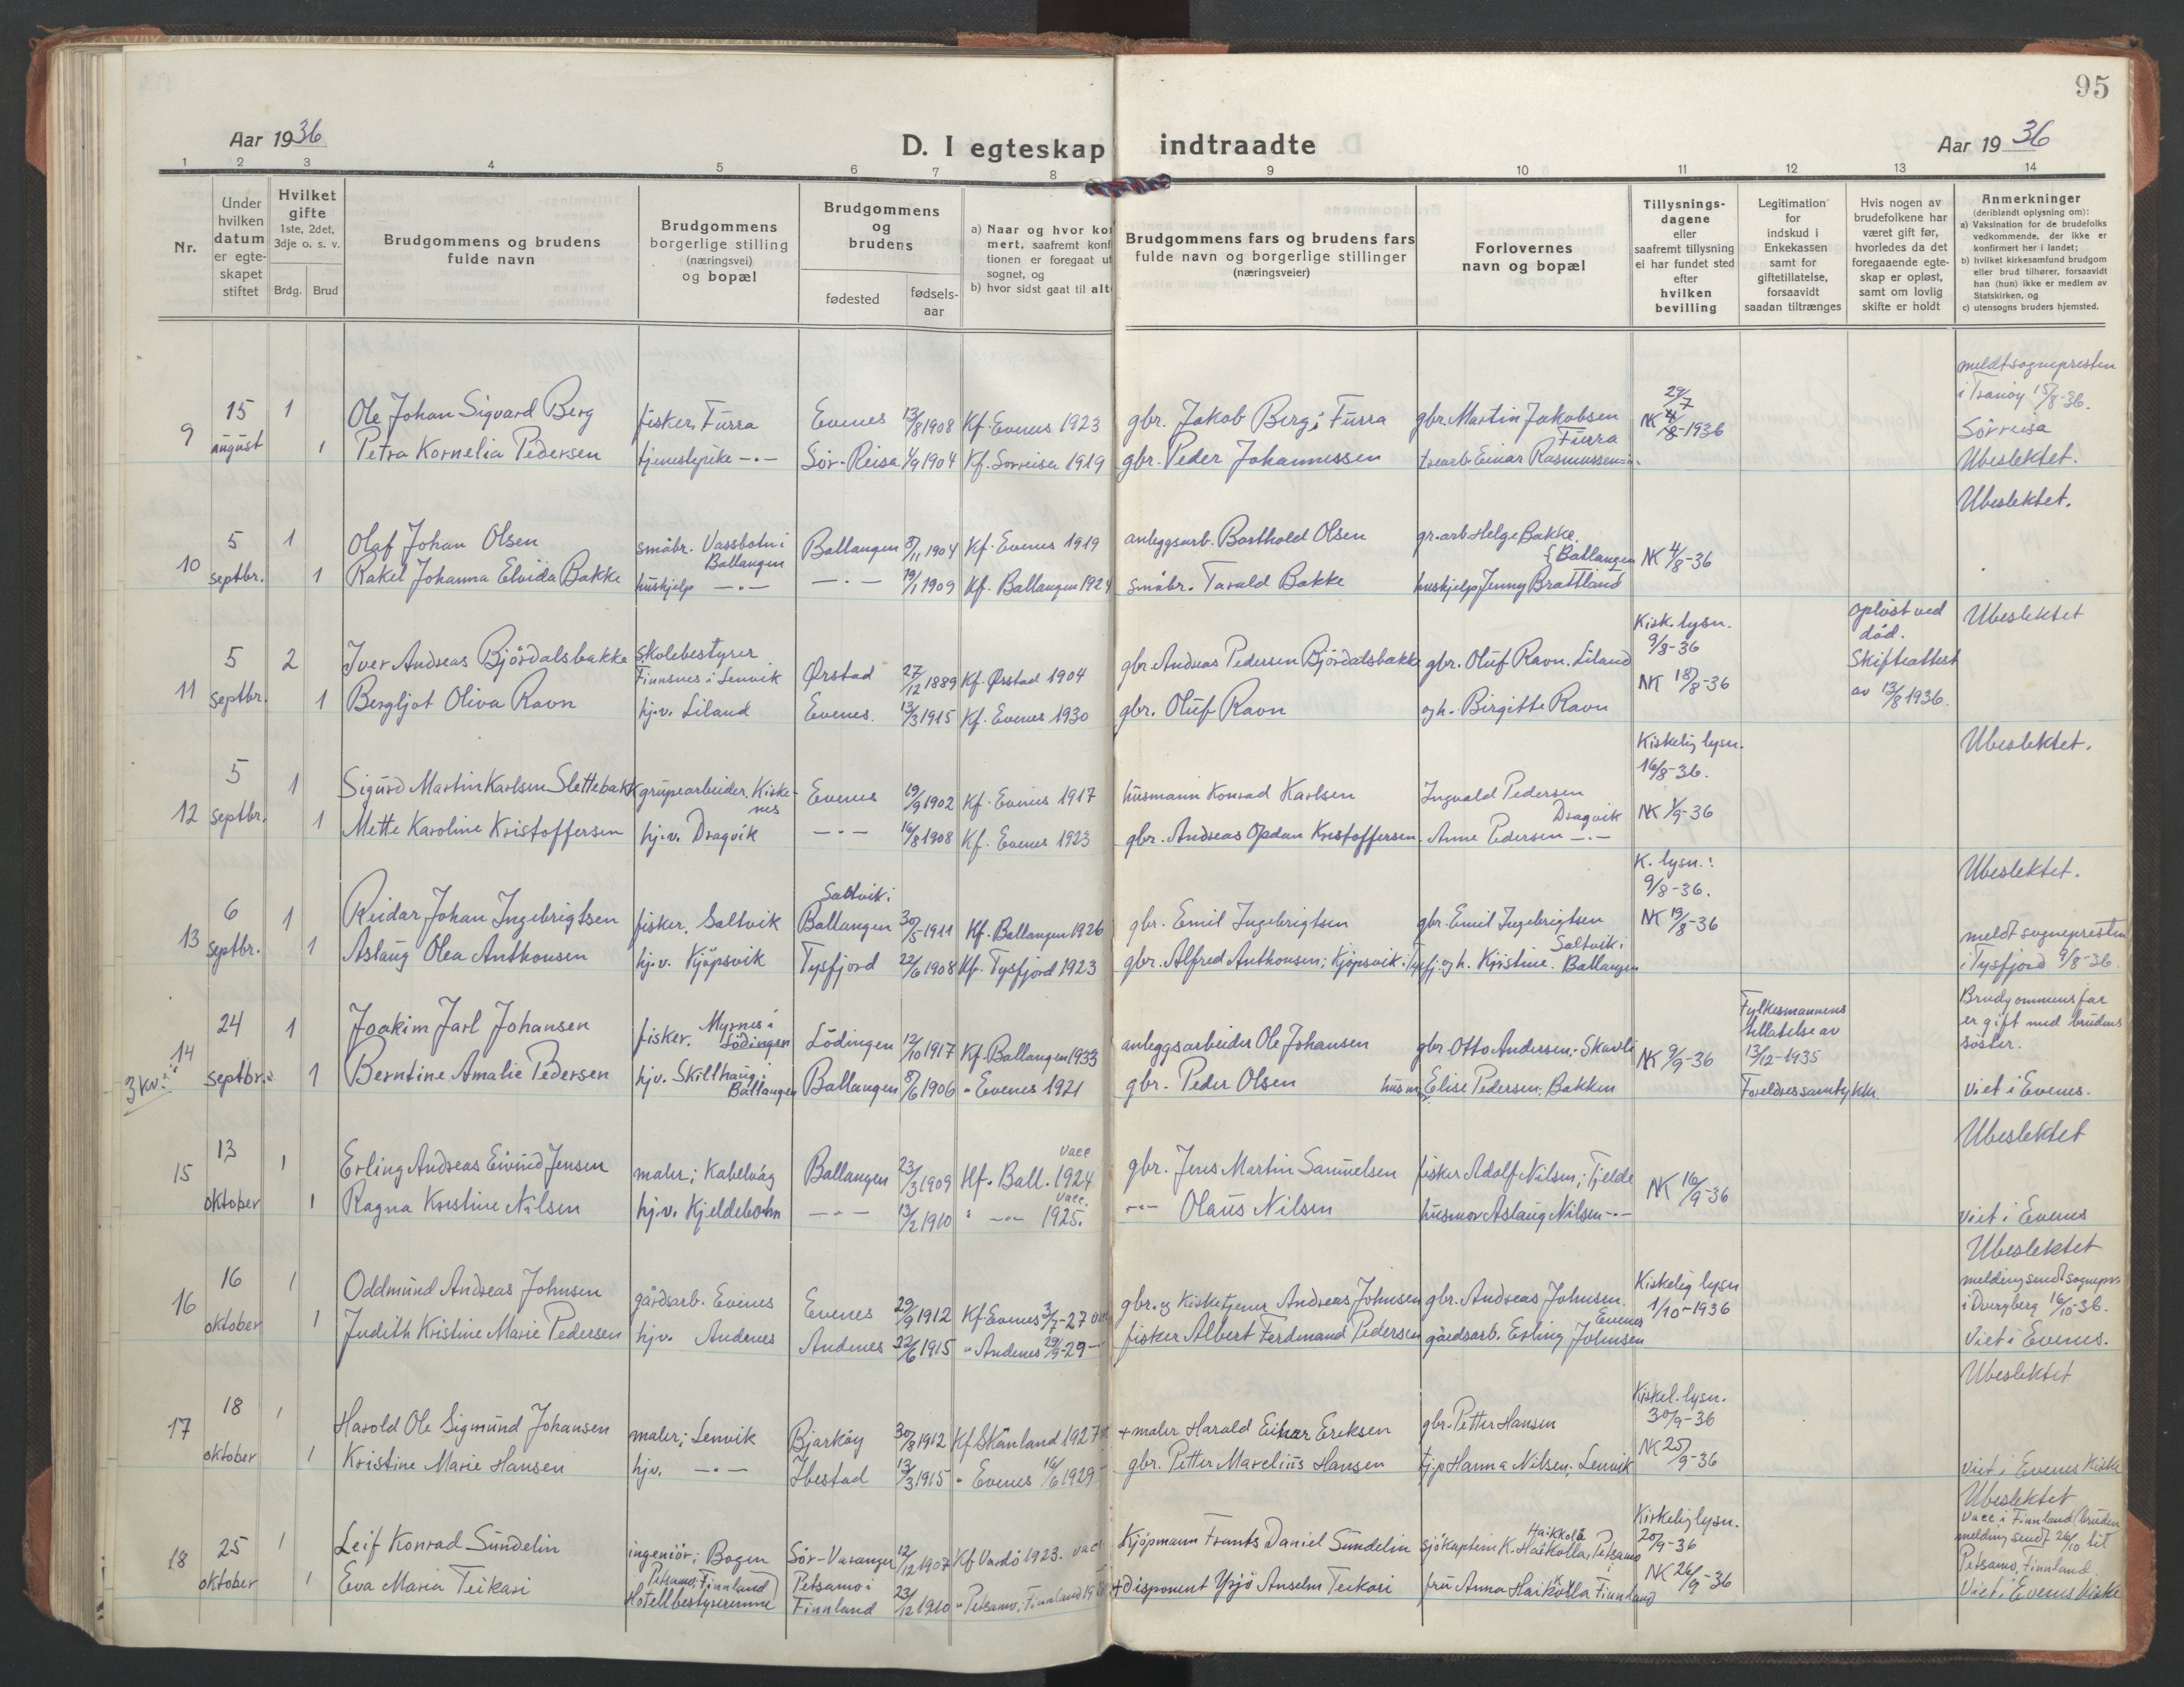 95
Aar 1936
D. I egteskap indtraadte
Aar 1936
1 2 3 4 5 6 7 8 9 10 11 12 13 14
Nr.
Under
hvilken
datum
er egte-
skapet
stiftet
Hvilket
gifte
1ste, 2det,
3dje o. s. v.
Brdg. Brud
Brudgommens og brudens
fulde navn
Brudgommens
borgerlige stilling
(næringsvei)
og bopæl
Brudgommens
og
brudens
fødested
fødsels-
aar
a) Naar og hvor kon
mert, saafremt konf
tionen er foregaat ut
sognet, og
b) hvor sidst gaat til alt
Brudgommens fars og brudens fars
fulde navn og borgerlige stillinger
(næringsveier)
Forlovernes
navn og bopæl
Tillysnings-
dagene
eller
saafremt tillysning
ei har fundet sted
efter
hvilken
bevilling
Legitimation
for
indskud i
Enkekassen
samt for
giftetillatelse,
forsaavidt
saadan tiltrænges
Hvis nogen av
brudefolkene har
været gift før,
hvorledes da det
foregaaende egte-
skap er opløst,
samt om lovlig
skifte er holdt
Anmerkninger
(deriblandt oplysning om):
a) Vaksination for de brudefolks
vedkommende, der ikke er
konfirmert her i landet;
b) hvilket kirkesamfund brudgom
eller brud tilhører, forsaavidt
han (hun) ikke er medlem av
Statskirken, og
c) utensogns bruders hjemsted.
9
15
august
1
1
Ole Johan Sigvard Berg
Petra Kornelia Pedersen
fisker, Furra
tjenestepike -"-
Evenes 13/8 1908 Kf. Evenes 1923
Sör-Reisa 4/9 1904 Kf. Sorreisa 1919
gbr. Jakob Berg; Furra
gbr. Peder Johannessen
gbr. Martin Jakobsen
Furra
Einar Rasmussen -"-
29/7
NK 4/8-1936
meldt sognepresten
i Tranöy 15/8-36.
Sörreisa
Ubeslektet.
10
5
septbr.
1
1
Olaf Johan Olsen
Rakel Johanna Elvida Bakke
småbr. Vassbotn i
Ballangen
huskjelp -"-
Ballangen 8/11 1904 Kf. Evenes 1919
-"- 19/1 1909 Kf. Ballangen 1924
anleggsarb. Barthold Olsen
småbr. Tarald Bakke
gr.arb. Helge Bakke.
{Ballangen
huskjelp Jenny Brattland
NK 4/8-36
Ubeslektet.
11
5
septbr.
2
1
Iver Andreas Björdalsbakke
Bergljot Oliva Ravn
Skolebestyrer
Finnsnes i Lenvik
hj.v. Liland
Ørstad 27/12 1889 Kf. Ørstad 1904
Evenes. 13/3 1915 Kf. Evenes 1930
gbr. Andreas Pedersen Björdalsbakke
gbr. Oluf Ravn
gbr. Oluf Ravn. Liland
og h. Birgitte Ravn
Kirk. lysn.
9/8-36
NK 18/8-36
opløst ved
död.
Skifteattest
av 13/8 1936.
Ubeslektet
12
5
septbr.
1
1
Sigurd Martin Karlsen Slettebakk
Mette Karoline Kristoffersen
grupearbeider. Kirke-
nes
hj.v. Dragvik
Evenes 19/9 1902 Kf. Evenes 1917
-"- 16/8 1908 Kf. Evenes 1923
husmann Konrad Karlsen
gbr. Andreas Opdan Kristoffersen.
Ingvald Pedersen
Dragvik
Anne Pedersen -"-
Kirkelig lysn.
16/8-36.
NK 1/9-36
Ubeslektet.
13
6
septbr.
1
1
Reidar Johan Ingebrigtsen
Aslaug Olea Anthonsen
fisker. Saltvik
hj.v. Kjöpsvik
Saltvik i
Ballangen 30/5-1911 Kf. Ballangen 1926
Tysfjord 22/6 1908 Kf. Tysfjord 1923
gbr. Emil Ingebrigtsen
gbr. Alfred Anthonsen; Kjöpsvik i Tysfj.
gbr. Emil Ingebrigtsen
Saltvik i
og h. Kristine. Ballangen
K. lysn.:
9/8-36.
NK 19/8-36
Ubeslektet.
meldt sognepresten
i Tysfjord 9/8-36.
14
3 kv.:
24
septbr.
1
1
Joakim Jarl Johansen
Berntine Amalie Pedersen
fisker. Myrnes i
Lödingen
hjv. Skillhaug i
Ballangen
Lödingen 12/10 1917 Kf. Ballangen 1933
Ballangen 8/6 1906 " Evenes 1921
anleggsarbeider Ole Johansen
gbr. Peder Olsen
gbr. Otto Andersen; Skavli
husm. Elise Pedersen; Bakken
NK 9/9-36
Fylkesmannens
tillatelse av
13/12-1935
Foreldressamtykke.
Brudgommens far
er gift med brudens
søster.
Viet i Evenes.
15
13
oktober
1
1
Erling Andreas Eivind Jensen
Ragna Kristine Nilsen
maler; Kabelvåg
hj.v. Kjeldebotn
Ballangen 23/3 1909 Kf. Ball. 1924 vacc
-"- 13/2 1910 " -"- 1925. vacc.
gbr. Jens Martin Samuelsen
-"- Olaus Nilsen
fisker Adolf Nilsen; Fjelde
husmor Aslaug Nilsen -"-
NK 16/9-36
Ubeslektet
Viet i Evenes
16
16
oktober
1
1
Oddmund Andreas Johnsen
Judith Kristine Marie Pedersen
gårdsarb. Evenes
hjv. Andenes
Evenes 29/9 1912 Kf. Evenes 3/7-27
Andenes 22/6 1915 " Andenes 29/9-29
gbr. og Kirketjener Andreas Johnsen
fisker Albert Ferdinand Pedersen
gbr. Andreas Johnsen.
Evenes
gårdsarb. Erling Johnsen
Kirkelig lysn
1/10-1936
Ubeslektet
melding sendt sognepr.
i Dverberg 16/10-36.
Viet i Evenes.
17
18
oktober
1
1
Harald Ole Sigmund Johansen
Kristine Marie Hansen
maler; Lenvik
hjv. -"-
Bjarköy 30/8 1912 Kf Skånland 1927
Ibestad 13/3 1915 " Evenes 16/6 1929
+ maler Harald Einar Eriksen
gbr. Petter Marelius Hansen
gbr. Petter Hansen
tj.p Hanna Nilsen; Lenvik
Kirkel. lysn.
30/9-36
NK 25/9-36
Ubeslektet
Viet i Evenes Kirke
18
25
oktober
1
1
Leif Konrad Sundelin
Eva Maria Teikari
ingeniör; Bogen
Petsamo, Finnland
Hotellbestyrerinne
Sör-Varanger 12/12 1907 Kf Vardö 1923. vacc
Petsamo i
Finnland 23/12 1910 " Petsamo, Finnland 19
Kjöpmann Frants Daniel Sundelin
+ Disponent Yrjö Anselm Teikari
Haikkola
sjökaptein K. Haikolla, Petsamo
i
fru Anna Haikolla Finnland
Kirkelig lysn.
20/9-36
NK 26/9-36
Ubeslektet
Vacc i Finnland (bruden
melding sendt 26/10 til
Petsamo, Finnland.
Viet i Evenes Kirke